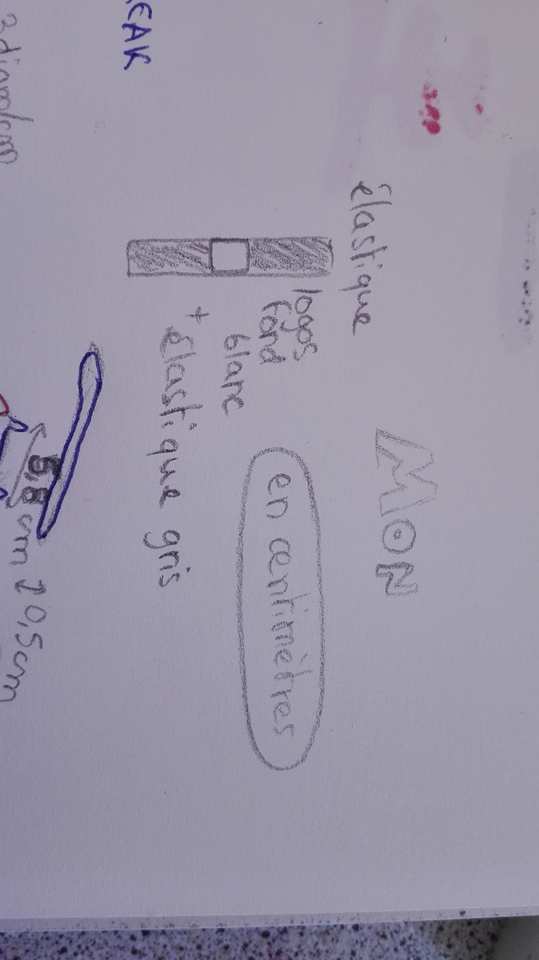 MON
élastique
logos
fond
blanc
+ élastique gris
en centimètres
5,8 cm
0,5 cm